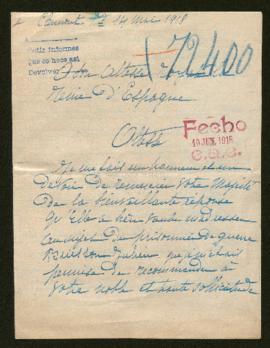 14 Mai 1918
Pedir informes
que se hace así
Devolver
72400
Son Altesse
Reine d'Espagne
Fecho
19 JUN. 1918
Altesse
Je me fais un honneur et un
devoir de remercier Votre Majesté
de la bienveillante réponse
qu'Elle a bien voulu m'adresser
au sujet du prisonnier de guerre
que j'avais
permise de recommander à
votre noble et haute sollicitude